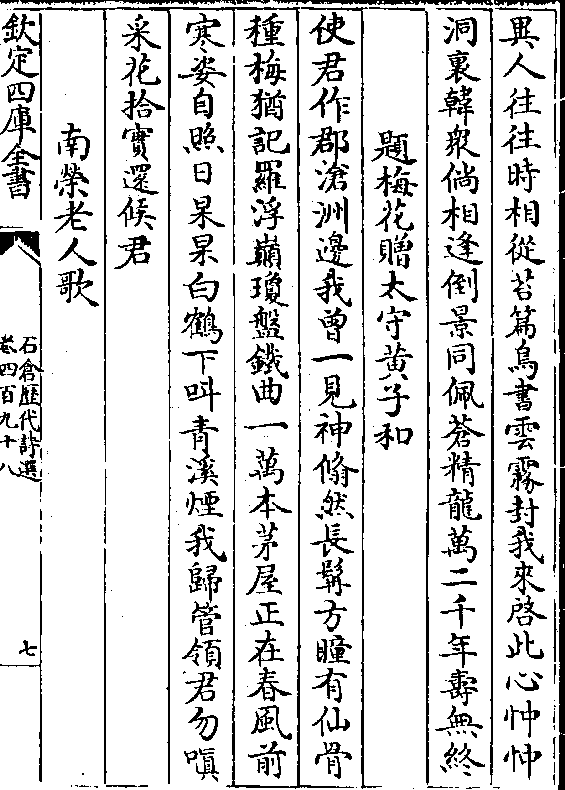 異人往往時相從苔篇鳥書雲霧封我來啓此心忡忡
洞裏韓衆倘相逢倒景同佩蒼精龍萬二千年壽無終
題梅花贈太守黄子和
使君作郡滄洲邊我曾一見神翛然長髯方瞳有仙骨
種梅猶記羅浮巔瓊盤鐵曲一萬本茅屋正在春風前
寒姿自照日杲杲白鶴下呌青溪煙我歸管領君勿嗔
采花拾實還候君
南榮老人歌
欽定四庫全書
石倉歷代詩選
卷四百九十八
七